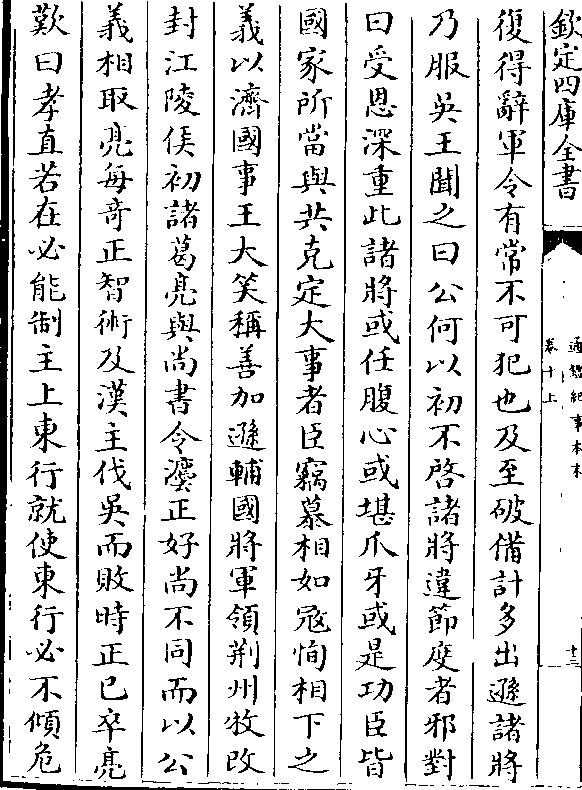 欽定四庫全書
通鑑紀事本末
卷十上
十三
復得辭軍令有常不可犯也及至破備計多出遜諸將
乃服吳王聞之曰公何以初不啓諸將違節度者邪對
曰受恩深重此諸將或任腹心或堪爪牙或是功臣皆
國家所當與共克定大事者臣竊慕相如冦恂相下之
義以濟國事王大笑稱善加遜輔國將軍領荆州牧改
封江陵侯初諸葛亮與尚書令灋正好尚不同而以公
義相取亮每竒正智術及漢主伐吳而敗時正已卒亮
歎曰孝直若在必能制主上東行就使東行必不傾危